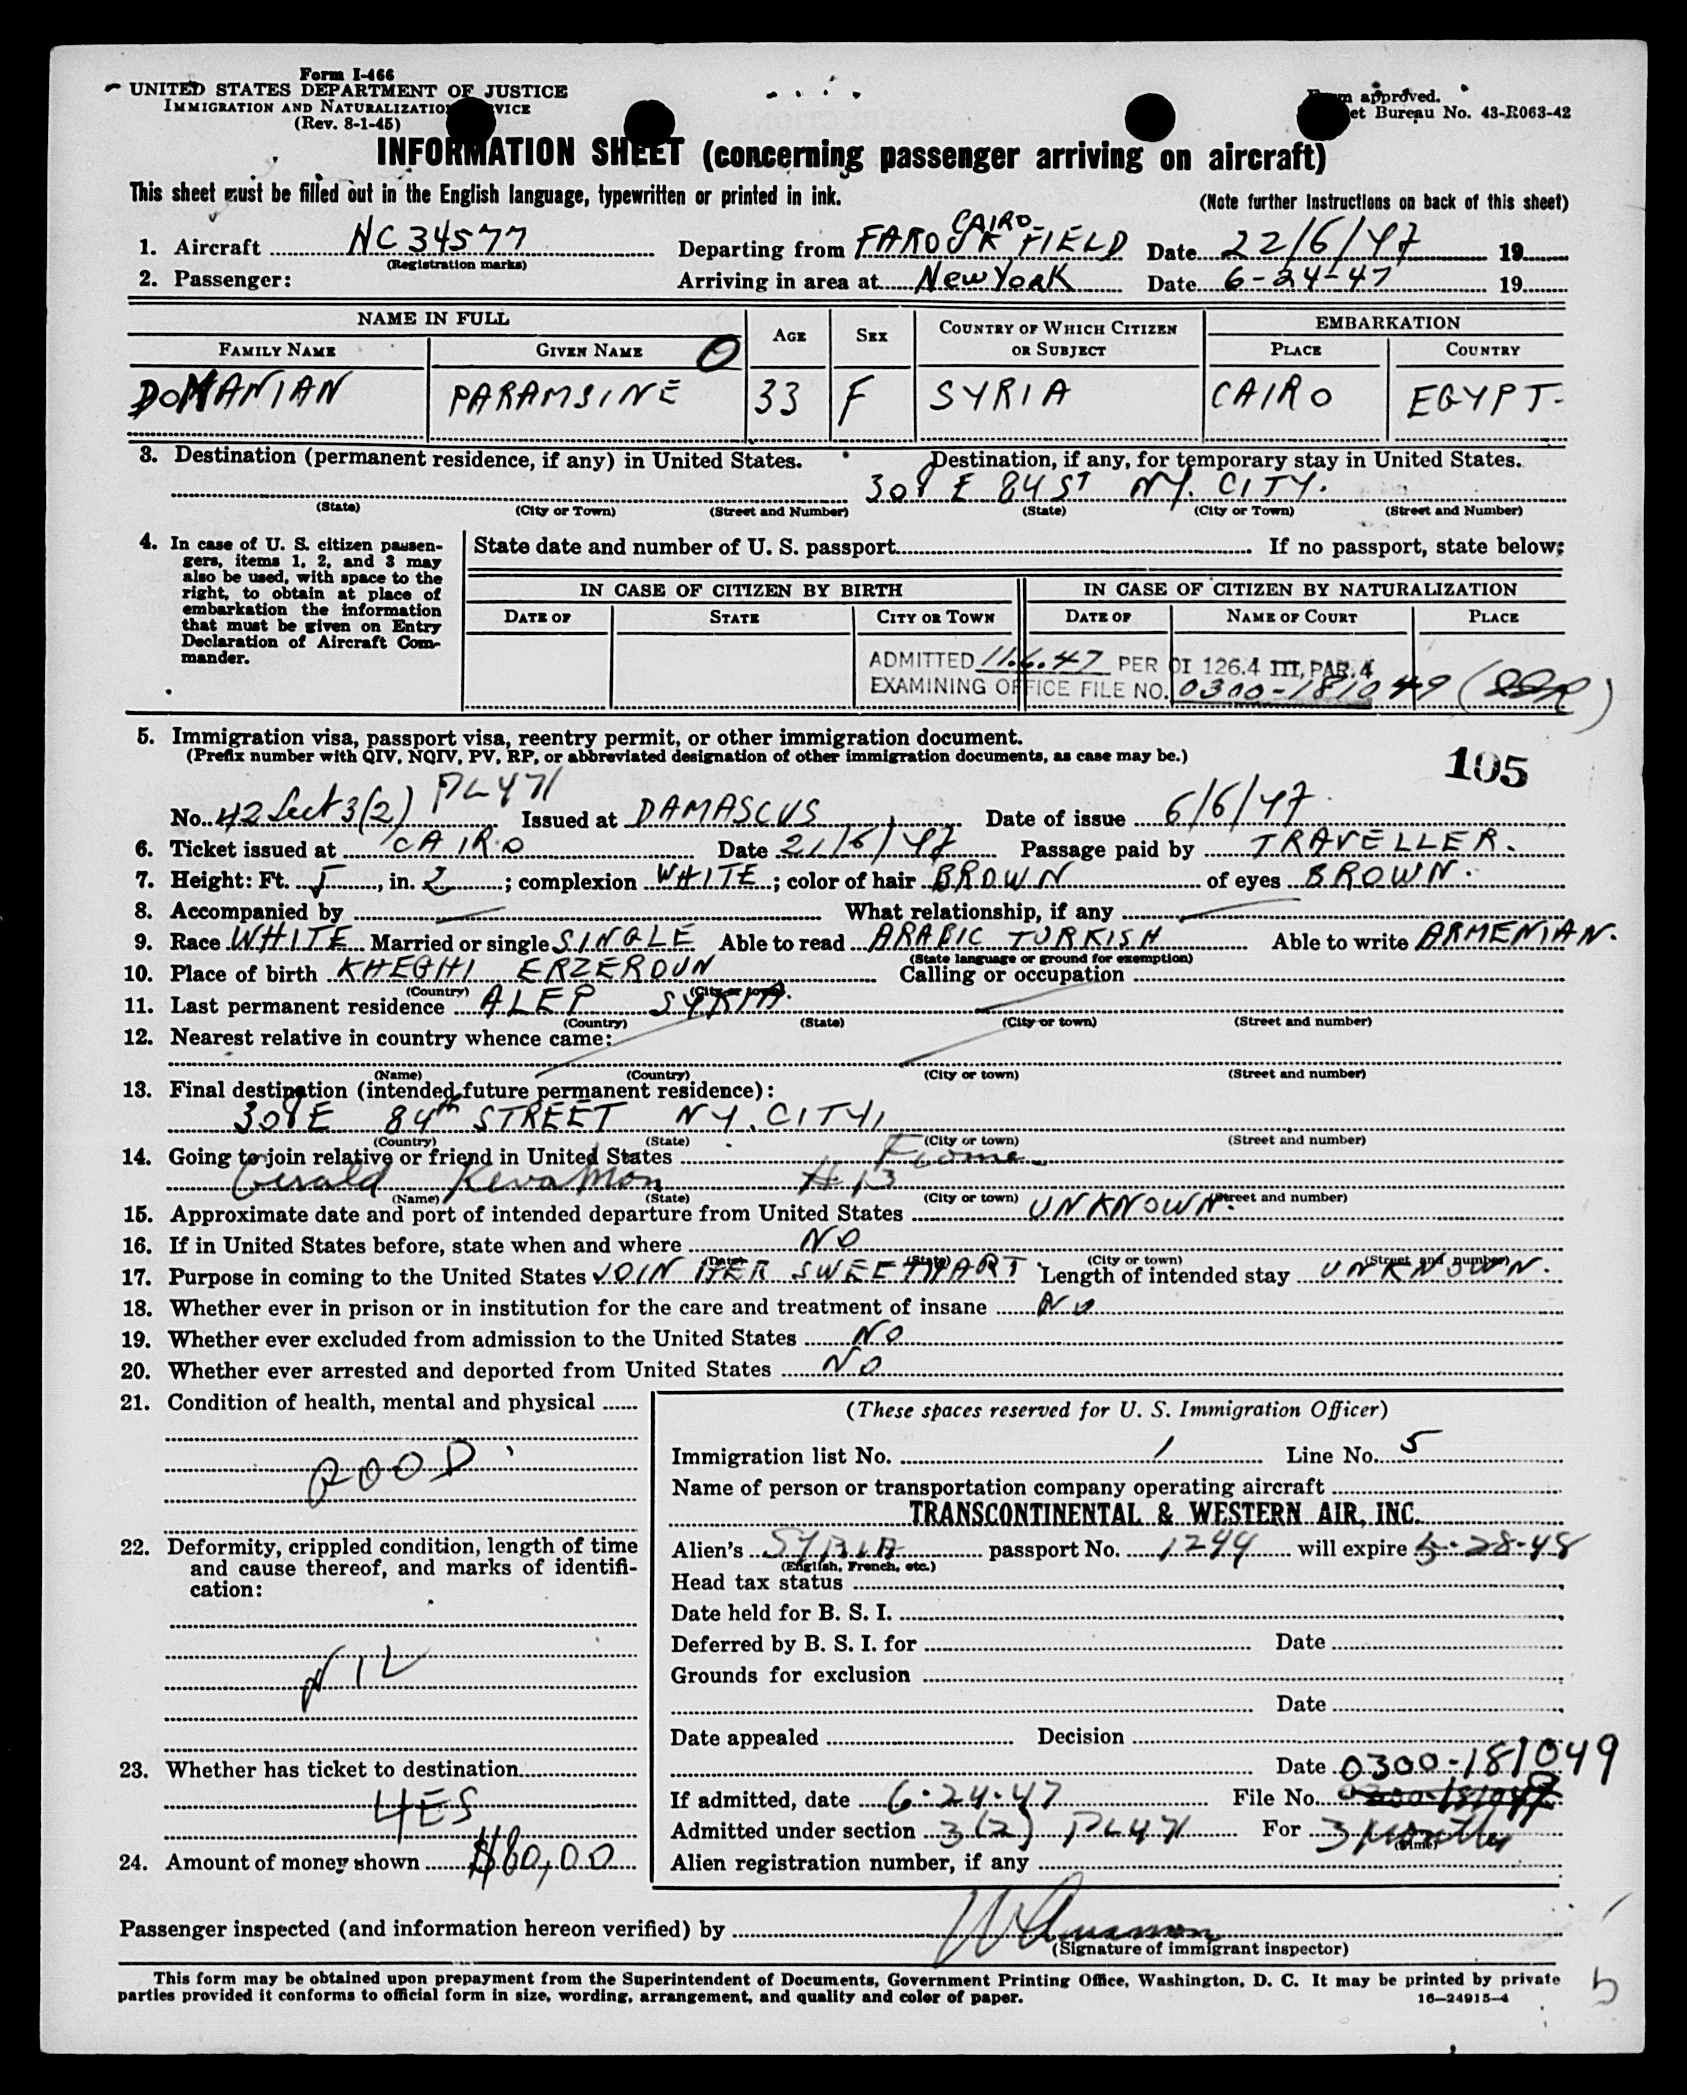 Form I-466
UNITED STATES DEPARTMENT OF JUSTICE
IMMIGRATION AND NATURALIZATION SERVICE
(Rev. 8-1-45)
Form approved.
Budget Bureau No. 43-R063-42
INFORMATION SHEET (concerning passenger arriving on aircraft)
This sheet must be filled out in the English language, typewritten or printed in ink.
(Note further instructions on back of this sheet)
1. Aircraft NC 34577 Departing from CAIRO- FAROUK FIELD Date 22/6/47 19
(Registration marks)
2. Passenger: Arriving in area at New York Date 6-24-47 19
NAME IN FULL AGE SEX COUNTRY OF WHICH CITIZEN OR SUBJECT EMBARKATION
FAMILY NAME GIVEN NAME PLACE COUNTRY
DOMANIAN PARAMSINE 33 F SYRIA CAIRO EGYPT-
3. Destination (permanent residence, if any) in United States. Destination, if any, for temporary stay in United States.
308 E 84 ST NY. CITY.
(State) (City or Town) (Street and Number) (State) (City or Town) (Street and Number)
4. In case of U. S. citizen passengers, items 1, 2, and 3 may also be used, with space to the right, to obtain at place of embarkation the information that must be given on Entry Declaration of Aircraft Commander.
State date and number of U. S. passport If no passport, state below:
IN CASE OF CITIZEN BY BIRTH IN CASE OF CITIZEN BY NATURALIZATION
DATE OF STATE CITY OR TOWN DATE OF NAME OF COURT PLACE
ADMITTED 11.6.47 PER OI 126.4 III, PAR. 4
EXAMINING OFFICE FILE NO. 0300-181049
5. Immigration visa, passport visa, reentry permit, or other immigration document.
(Prefix number with QIV, NQIV, PV, RP, or abbreviated designation of other immigration documents, as case may be.)
105
No. 42 Sect 3(2) PL 471 Issued at DAMASCUS Date of issue 6/6/47
6. Ticket issued at CAIRO Date 21/6/47 Passage paid by TRAVELLER.
7. Height: Ft. 5, in. 2; complexion WHITE; color of hair BROWN of eyes BROWN.
8. Accompanied by What relationship, if any
9. Race WHITE Married or single SINGLE Able to read ARABIC TURKISH Able to write ARMENIAN.
(State language or ground for exemption)
10. Place of birth KHEGHI ERZEROUN Calling or occupation
(Country) (City or town)
11. Last permanent residence ALEP SYRIA.
(Country) (State) (City or town) (Street and number)
12. Nearest relative in country whence came:
(Name) (Country) (City or town) (Street and number)
13. Final destination (intended future permanent residence):
308 E 84th STREET NY. CITY,
(Country) (State) (City or town) (Street and number)
14. Going to join relative or friend in United States
Gerald
(Name) (State) (City or town) (Street and number)
15. Approximate date and port of intended departure from United States UNKNOWN.
16. If in United States before, state when and where NO
(Date) (State) (City or town) (Street and number)
17. Purpose in coming to the United States JOIN HER SWEETHART Length of intended stay UNKNOWN.
18. Whether ever in prison or in institution for the care and treatment of insane No
19. Whether ever excluded from admission to the United States NO
20. Whether ever arrested and deported from United States NO
21. Condition of health, mental and physical
GOOD
22. Deformity, crippled condition, length of time and cause thereof, and marks of identification:
NIL
23. Whether has ticket to destination
YES
24. Amount of money shown $60,00
(These spaces reserved for U. S. Immigration Officer)
Immigration list No. 1 Line No. 5
Name of person or transportation company operating aircraft
TRANSCONTINENTAL & WESTERN AIR, INC.
Alien's SYRIA passport No. 1244 will expire 5-28-48
(English, French, etc.)
Head tax status
Date held for B. S. I.
Deferred by B. S. I. for Date
Grounds for exclusion
Date
Date appealed Decision
Date 0300-181049
If admitted, date 6-24-47 File No.
Admitted under section 3(2) PL 471 For 3 months
(Time)
Alien registration number, if any
Passenger inspected (and information hereon verified) by
(Signature of immigrant inspector)
This form may be obtained upon prepayment from the Superintendent of Documents, Government Printing Office, Washington, D. C. It may be printed by private
parties provided it conforms to official form in size, wording, arrangement, and quality and color of paper.
16-24915-4
5